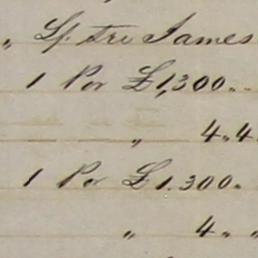 „ Lf. Tre James
1 Por £1,300„.
„ 4„4.
1 Por £1.300„.
„ 4„ „